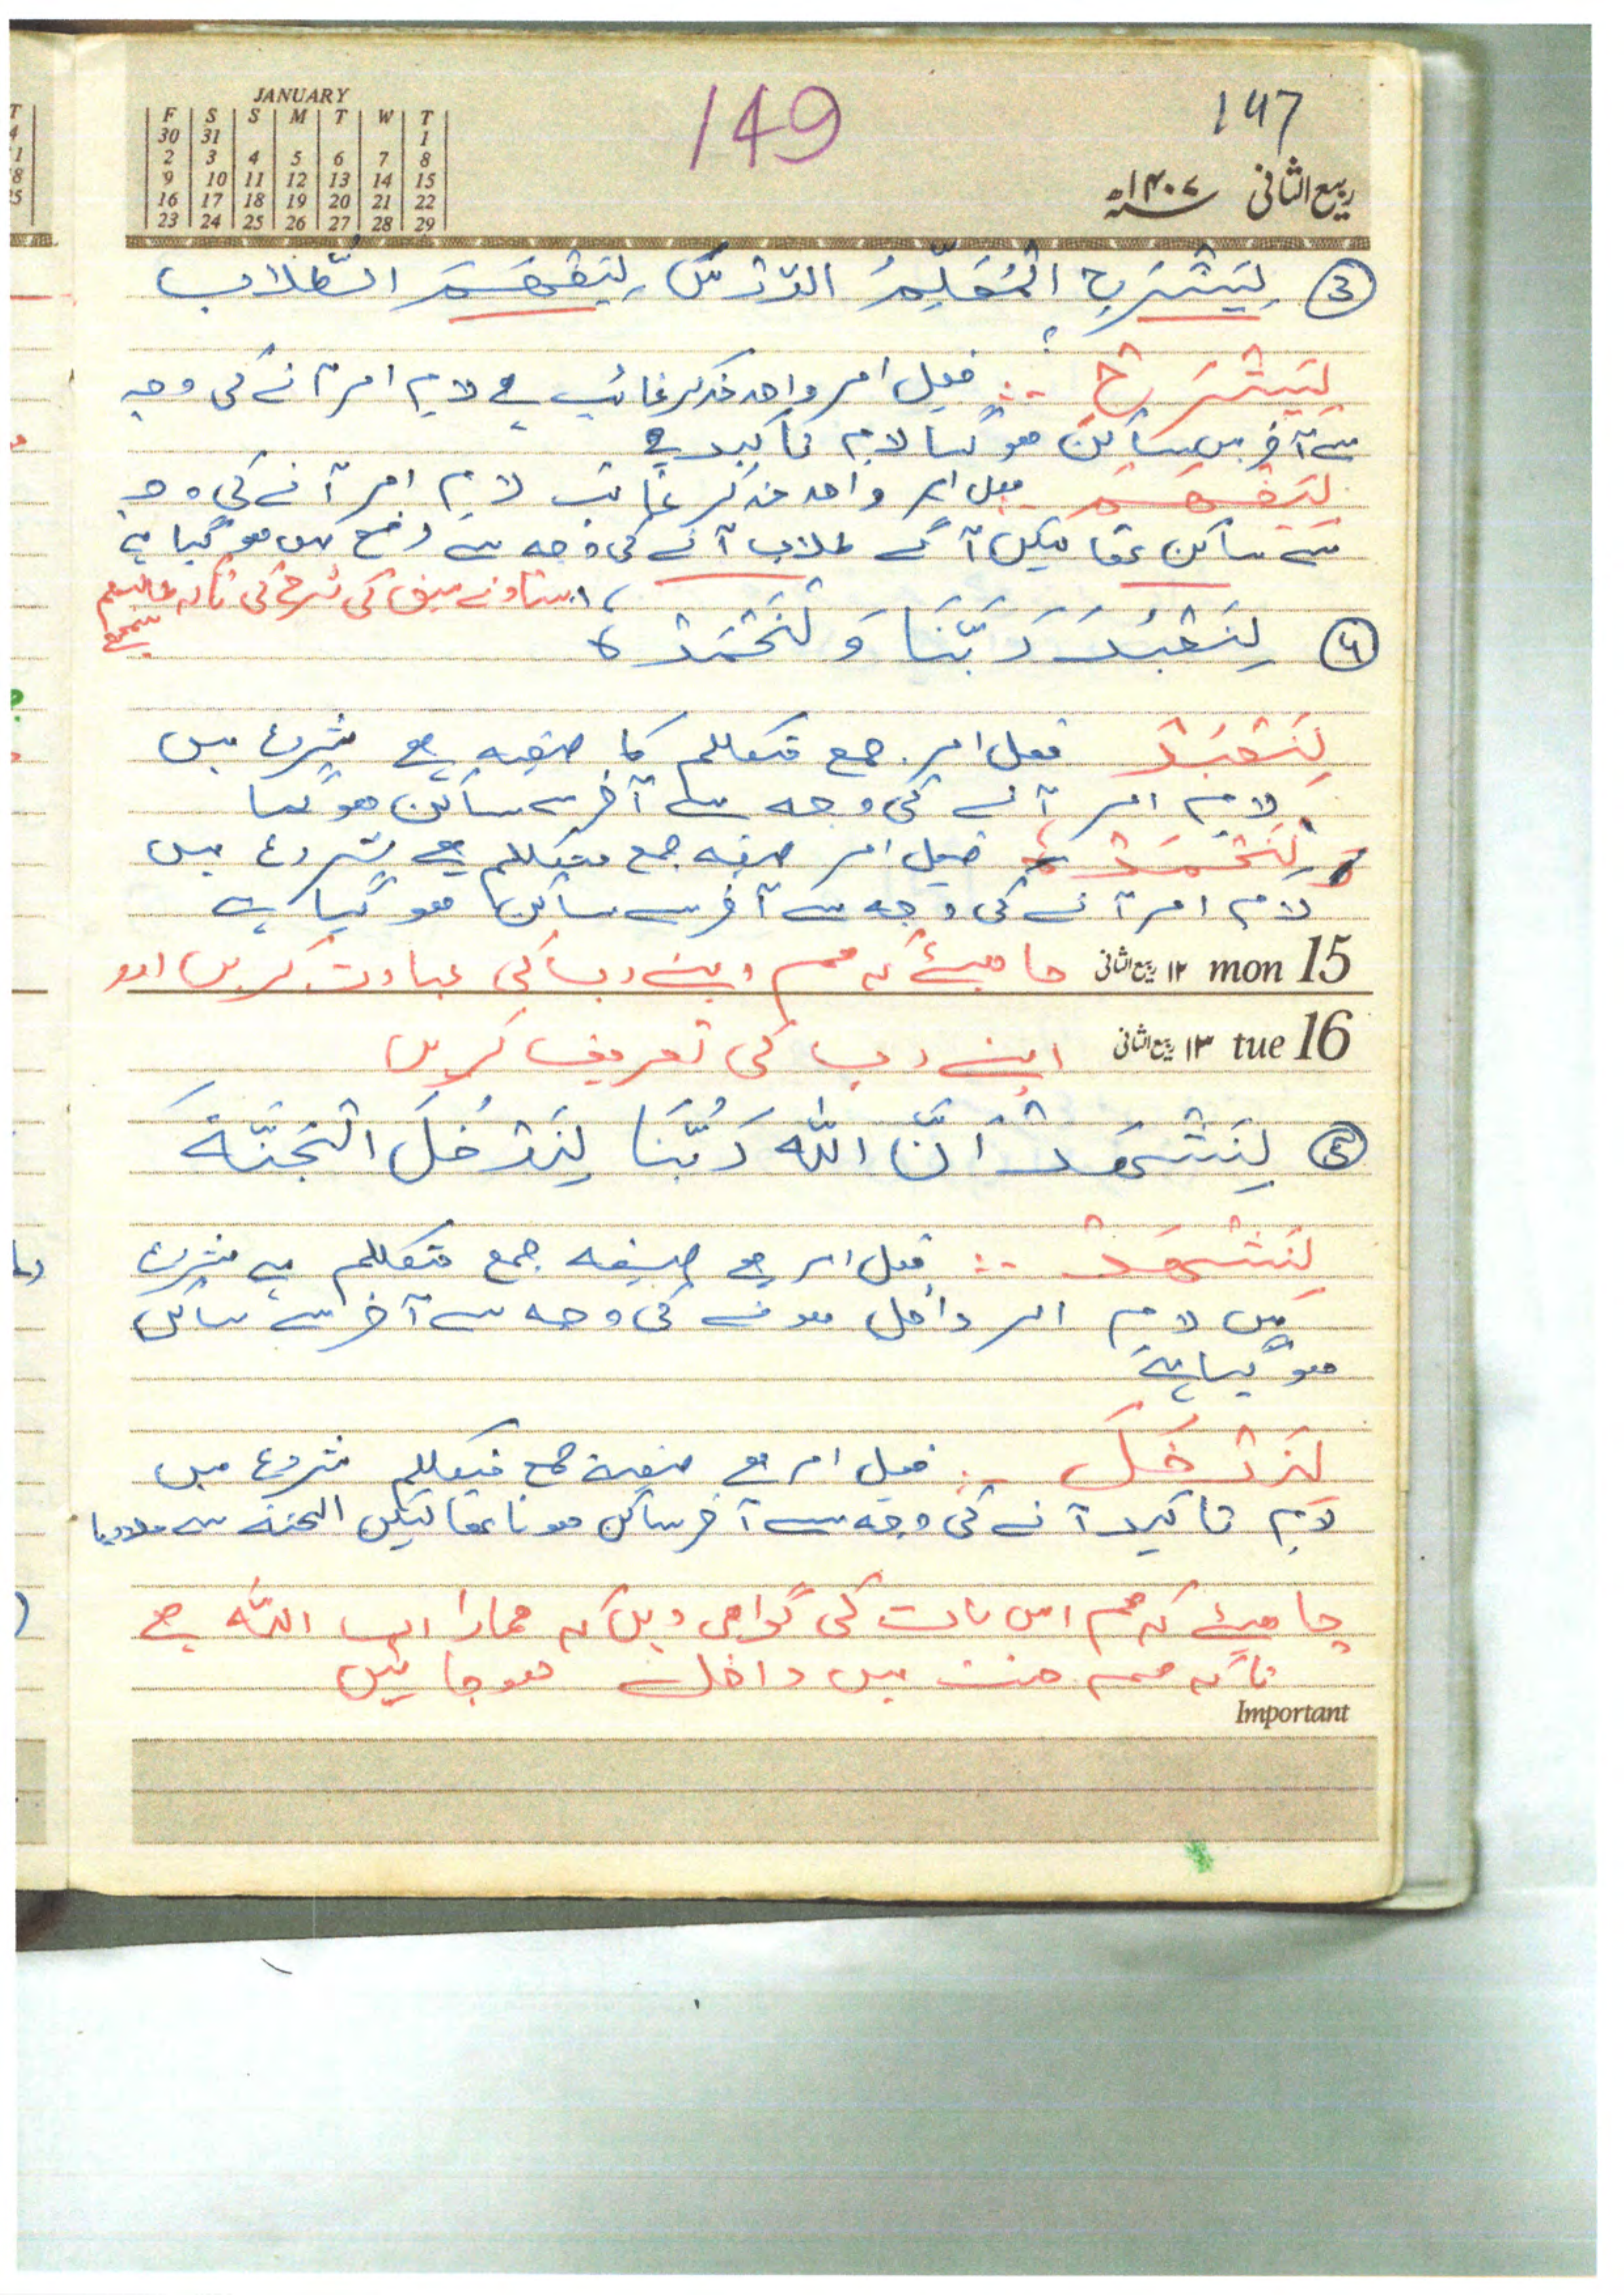 JANUARY
F S S M T W T
30 31 1
2 3 4 5 6 7 8
9 10 11 12 13 14 15
16 17 18 19 20 21 22
23 24 25 26 27 28 29
149
147
ربیع الثانی ۱۴۰۷ھ
③ لِيَشْرَحِ الْمُعَلِّمُ الدَّرْسَ لِيَفْهَمَ الطُّلاب
لِيَشْرَحْ :- فعل امر واحد مذکر غائب ہے لام امر آنے کی وجہ
سے آخر میں ساکن ہوگیا لام تاکید ہے
لِيَفْهَم فعل امر واحد مذکر غائب لام امر آنے کی وجہ
سے ساکن تھا لیکن آگے طلاب آنے کی وجہ سے
استاد نے سبق کی شرح کی تاکہ طالبعلم
سمجھے
④ لِنَعْبُد رَبَّنَا وَ لْنَحْمَدْهُ
لِنَعْبُدْ فعل امر جمع متکلم کا صیغہ ہے شروع میں
لام امر آنے کی وجہ سے آخر سے ساکن ہوگیا
وَلْنَحْمَدْهُ فعل امر صیغہ جمع متکلم ہے شروع میں
لام امر آنے کی وجہ سے آخر سے ساکن ہوگیا ہے
mon 15 ۱۲ ربیع الثانی چاہیئے کہ ہم اپنے رب کی عبادت کریں اور
tue 16 ۱۳ ربیع الثانی اپنے رب کی تعریف کریں
⑤ لِنَشْهَدْ اَنَّ اللّٰہ رَبُّنَا لِنَدْخُلَ الْجَنَّةَ
لِنَشْهَدْ :- فعل امر ہے صیغہ جمع متکلم ہے شروع
میں لام امر داخل ہونے کی وجہ سے آخر سے ساکن
ہوگیا ہے
لِنَدْخُلَ :- فعل امر ہے صیغہ جمع متکلم شروع میں
لام تاکید آنے کی وجہ سے آخر ساکن ہونا تھا لیکن الجنۃ سے ملا دیا
چاہیئے کہ ہم اس بات کی گواہی دیں کہ ہمارا رب اللّٰہ ہے
تاکہ ہم جنت میں داخل ہوجائیں
Important